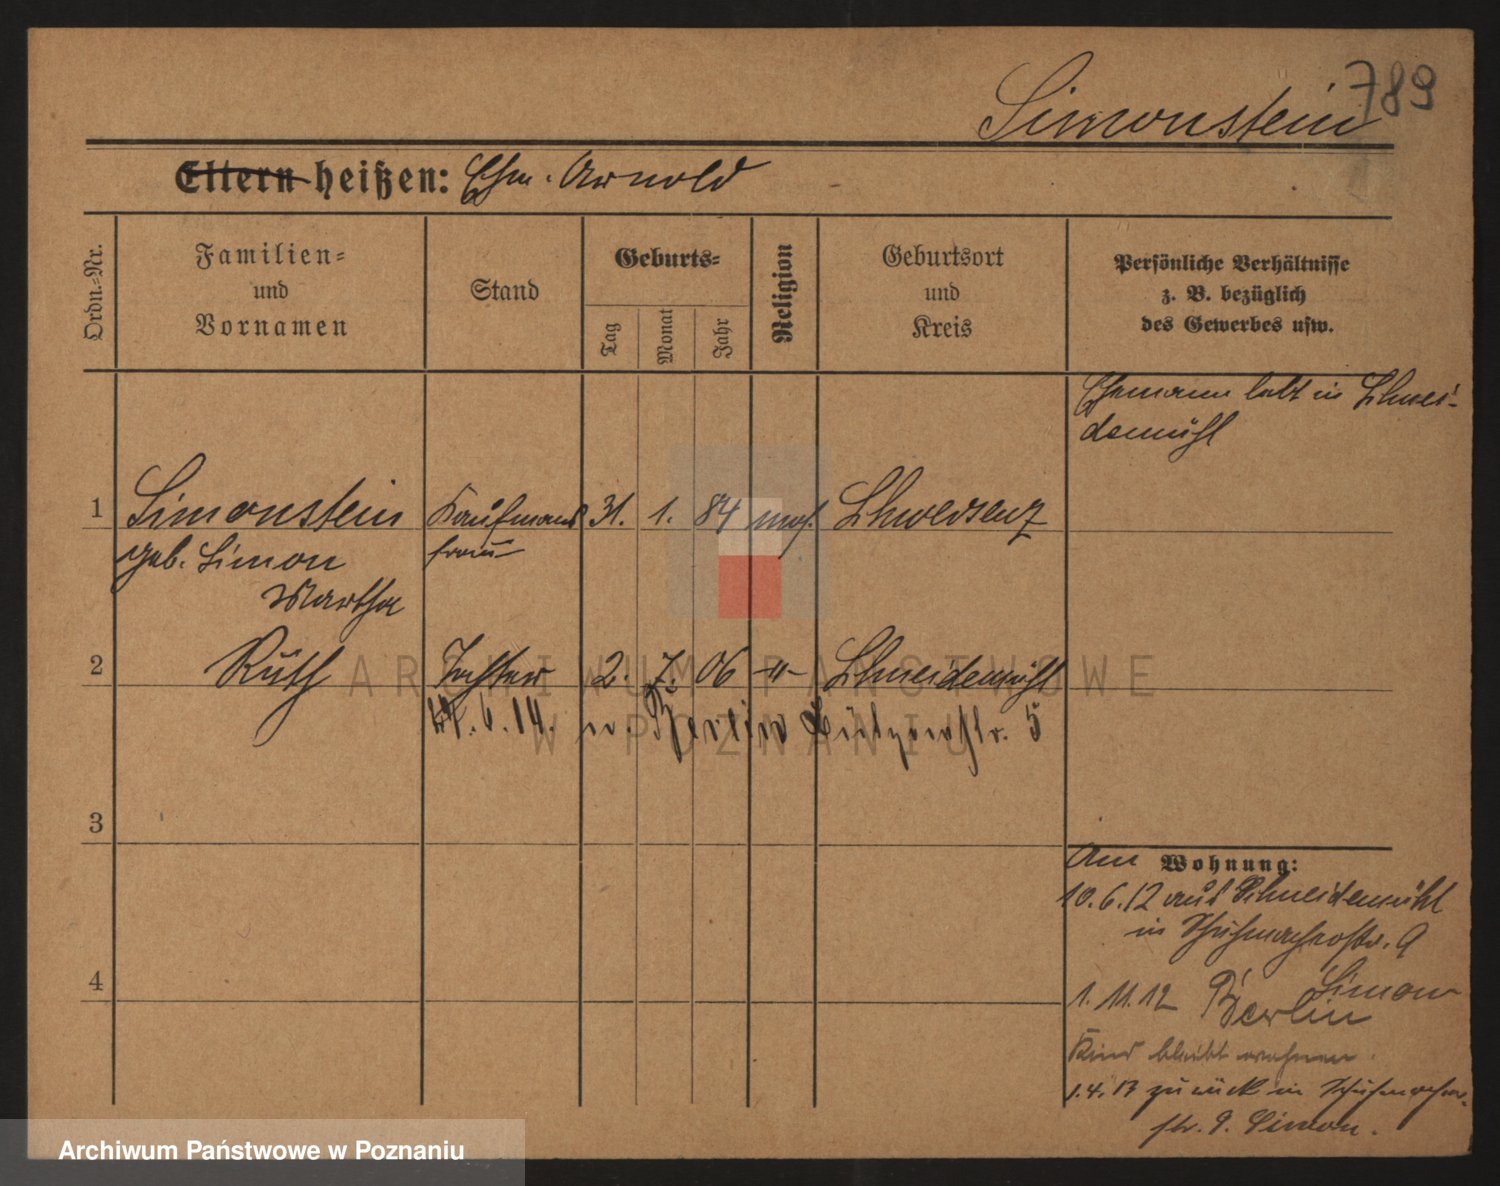 789
Simonstein
Eltern heißen: Ehm. Arnold
Ordn.-Nr.
Familien-
und
Vornamen
Stand
Geburts-
Tag
Monat
Jahr
Religion
Geburtsort
und
Kreis
Persönliche Verhältnisse
z. B. bezüglich
des Gewerbes usw.
Ehemann lebt in Schnei-
demühl
1 Simonstein Kaufmanns 31. 1. 84 mos. Schwersenz
geb. Simon frau
Martha
2 Ruth Tochter 2. 7. 06 -"- Schneidemühl
ARCHIWUM PAŃSTWOWE
W POZNANIU
24. 6. 14. n. Berlin Lützowstr. 5
3
Am Wohnung:
10.6.12 aus Schneidemühl
in Schuhmacherstr. 9
Simon
4
1. 11. 12 Berlin
Kind bleibt wohnen.
1.4.13 zurück in Schuhmacher-
str. 9. Simon.
Archiwum Państwowe w Poznaniu